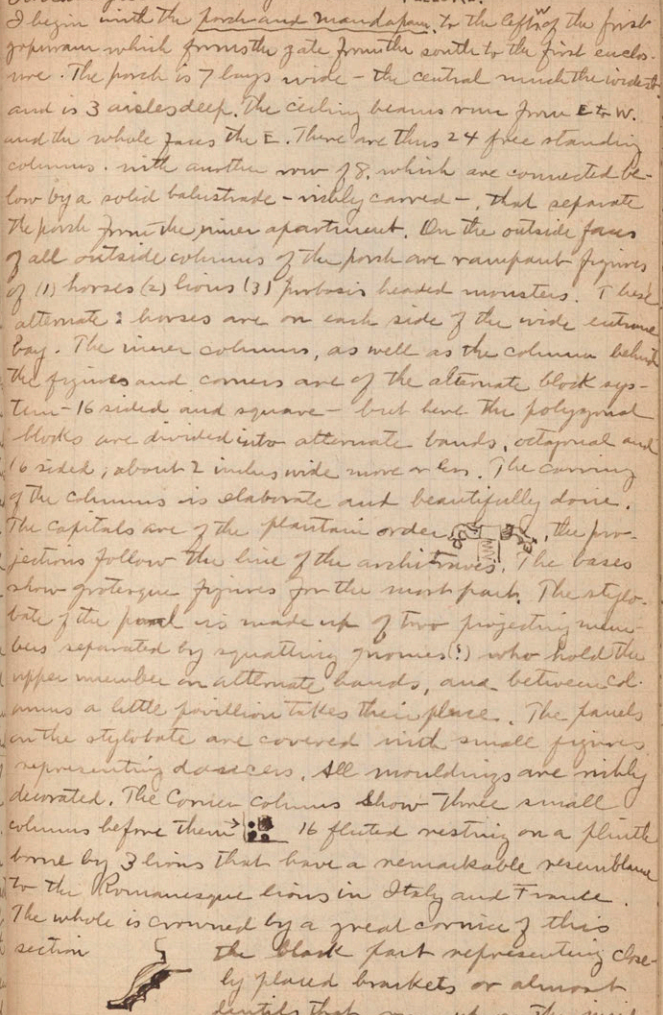 I begin with the porch and mandapam. to the left w of the first
gopuram which forms the gate from the south to the first enclos-
ure. The porch is 7 bays wide - the central much the widest
and is 3 aisles deep. The ceiling beams run from E to W.
and the whole faces the E. There are thus 24 free standing
columns. with another row of 8. which are connected be-
low by a solid balustrade - richly carved -, that separate
the porch from the inner apartment. On the outside faces
of all outside columns of the porch are rampant figures
of (1) horses (2) lions (3) headed monsters. These
alternate: horses are on each side of the wide entrance
bay. The inner columns, as well as the column behind
the figures and corners are of the alternate block sys-
tem - 16 sided and square - but here the polygonal
blocks are divided into alternate bands, octagonal and
16 sided, about 2 inches wide more or less. The carving
of the columns is elaborate and beautifully done.
The capitals are of the plantain order, the pro-
jections follow the line of the architraves. The bases
show grotesque figures for the most part. The stylo-
bate of the is made up of two projecting mem-
bers separated by squatting gnomes(?) who hold the
upper member on alternate hands, and between col-
umns a little pavillion takes their place. The panels
on the stylobate are covered with small figures
representing dancers. All mouldings are richly
decorated. The Corner columns show three small
columns before them → 16 fluted resting on a plinth
borne by 3 lions that have a remarkable resemblance
to the Romanesque lions in Italy and France.
The whole is crowned by a great cornice of this
section the black part representing close-
ly placed brackets or almost
dentils that